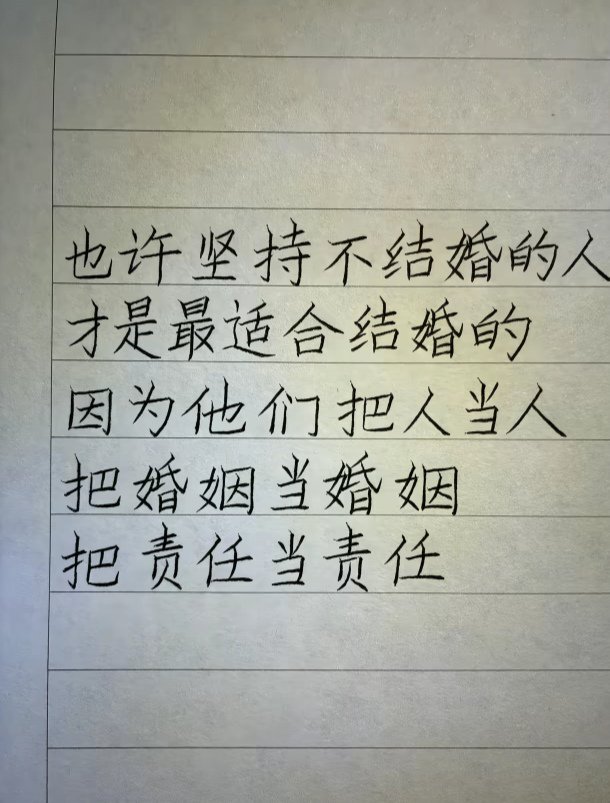 也许坚持不结婚的人
才是最适合结婚的
因为他们把人当人
把婚姻当婚姻
把责任当责任